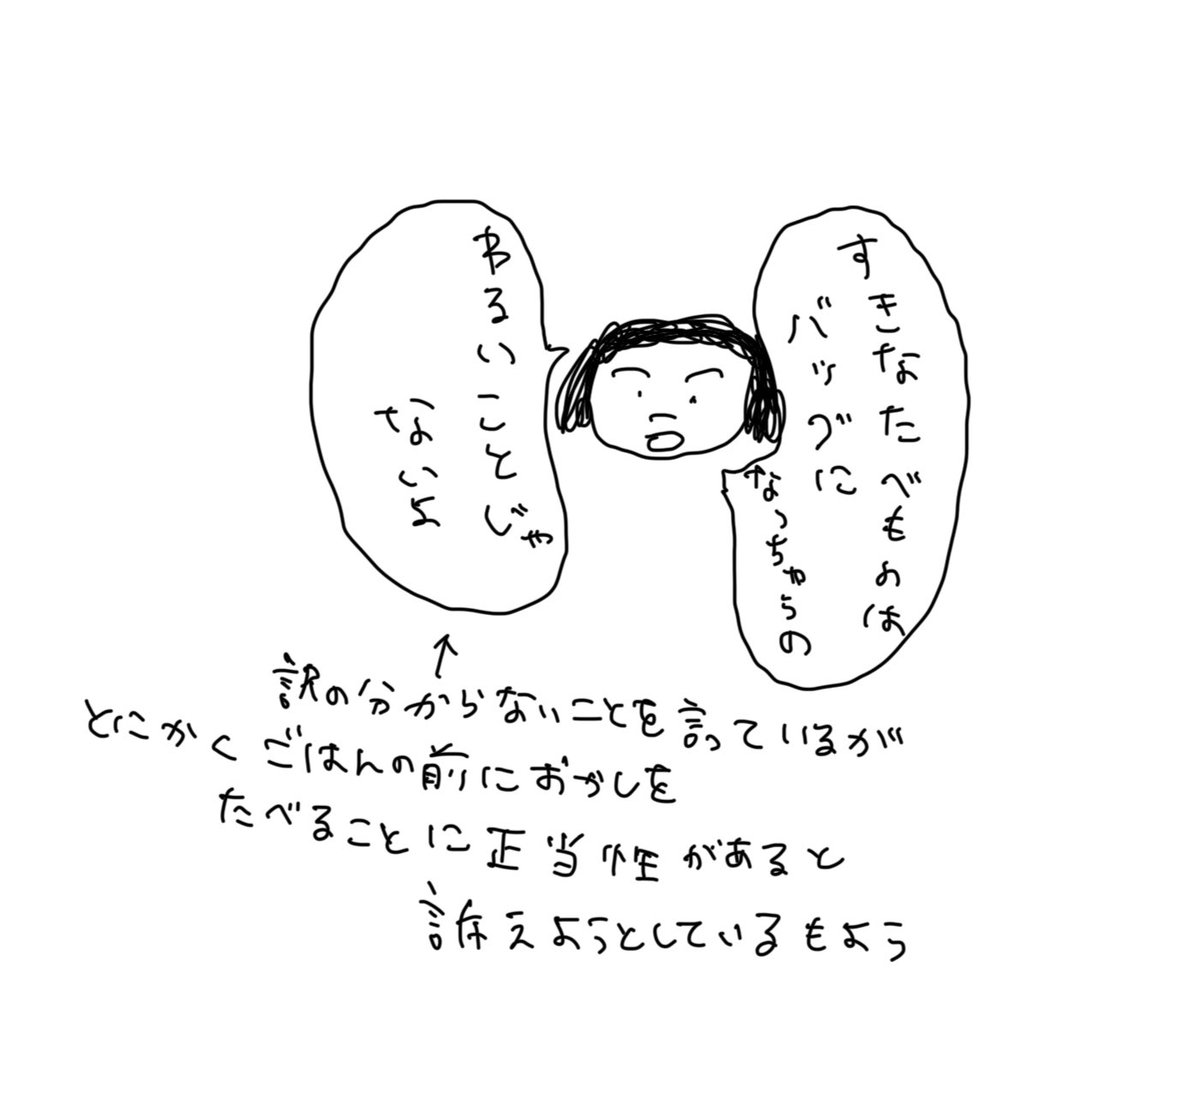 すきなたべものは
バッグに
なっちゃらの
わるいことじゃ
ないよ
↑
訳の分からないことを言っているが
とにかくごはんの前におかしを
たべることに正当性があると
訴えようとしているもよう